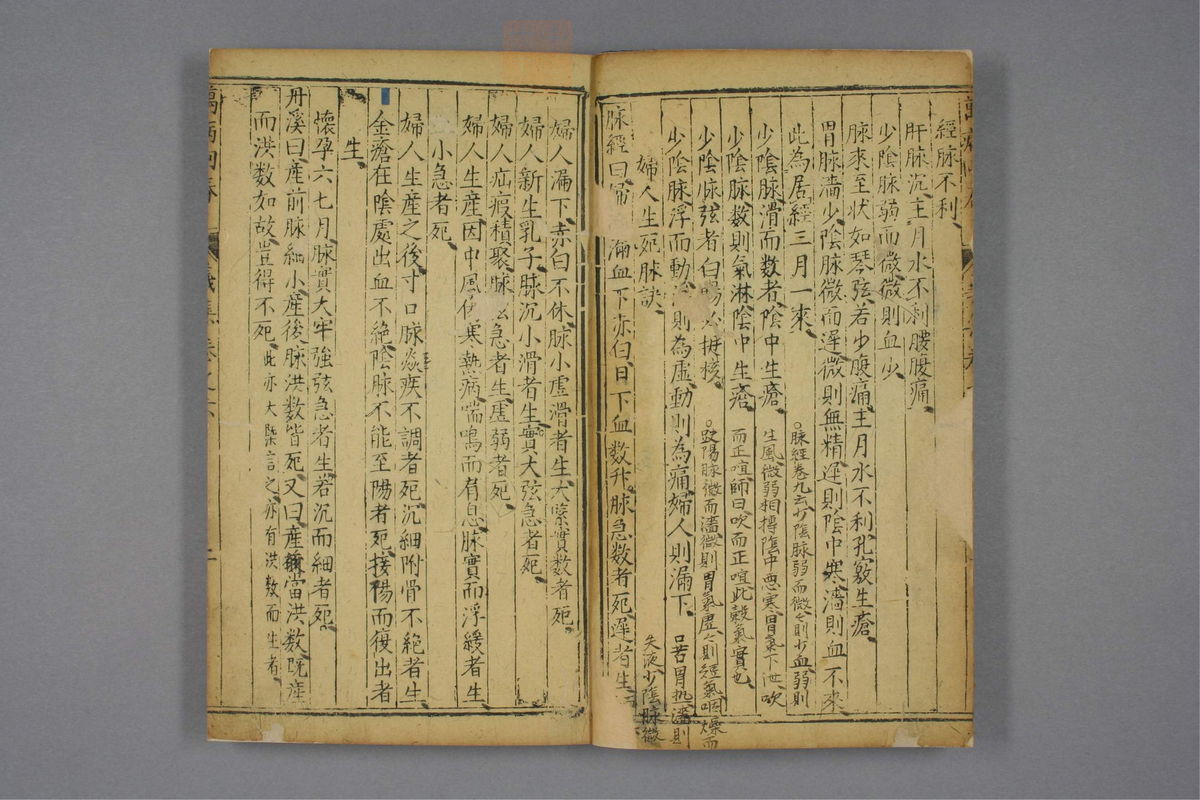 經脉不利
肝脉沉主月水不利腰腹痛
少陰脉弱而微微則血少
脉來至狀如琴弦若少腹痛主月水不利孔竅生瘡
胃脉濇少陰脉微而遲微則無精遲則陰中寒濇則血不來
此為居經三月一來
○脉經卷九云少陰脉弱而微微則少血弱則
少陰脉滑而数者陰中生瘡
生風微弱相摶陰中惡寒胃氣下泄吹
少陰脉数則氣淋陰中生瘡
而正喧師曰吹而正喧此穀氣實也
少陰脉弦者白腸必挺核
○趺陽脉微而濇微則胃氣虛虛則經氣咽燥而
少陰脉浮而動 則為虛動則為痛婦人則漏下
口苦胃热濇則
婦人生死脉訣
失液少陰脉微
脉經曰 漏血下赤白日下血数升脉急数者死遲者生
婦人漏下赤白不休脉小虛滑者生大緊實数者死
婦人新生乳子脉沉小滑者生實大弦急者死
婦人疝瘕積聚脉 急者生虛弱者死
婦人生產因中風傷寒熱病喘鳴而肩息脉實而浮緩者生
小急者死
婦人生產之後寸口脉焱疾不調者死沉細附骨不絕者生
金瘡在陰處出血不絕陰脉不能至陽者死接陽而復出者
生
懷孕六七月脉實大牢強弦急者生若沉而細者死
丹溪曰產前脉細小產後脉洪数皆死又曰產前當洪数既產
而洪数如故豈得不死此亦大槩言之亦有洪数而生者